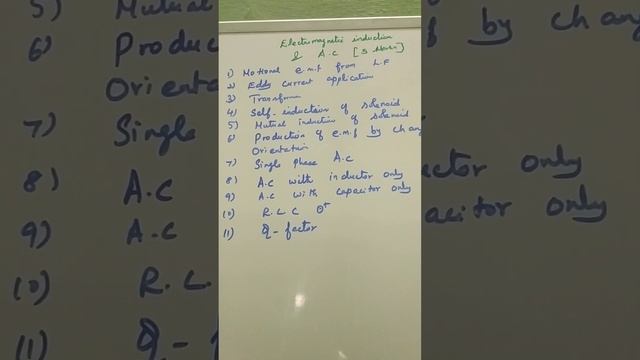 Electromagnetic induction
& A.C [5 Marks]
1) Motional e.m.f from L.F
2) Eddy current application
3) Transformer
4) Self-induction of solenoid
5) Mutual induction of solenoid
6) Production of e.m.f by chang
Orientation
7) Single phase A.C
8) A.C with inductor only
9) A.C with capacitor only
10) R.L.C
11) Q-factor